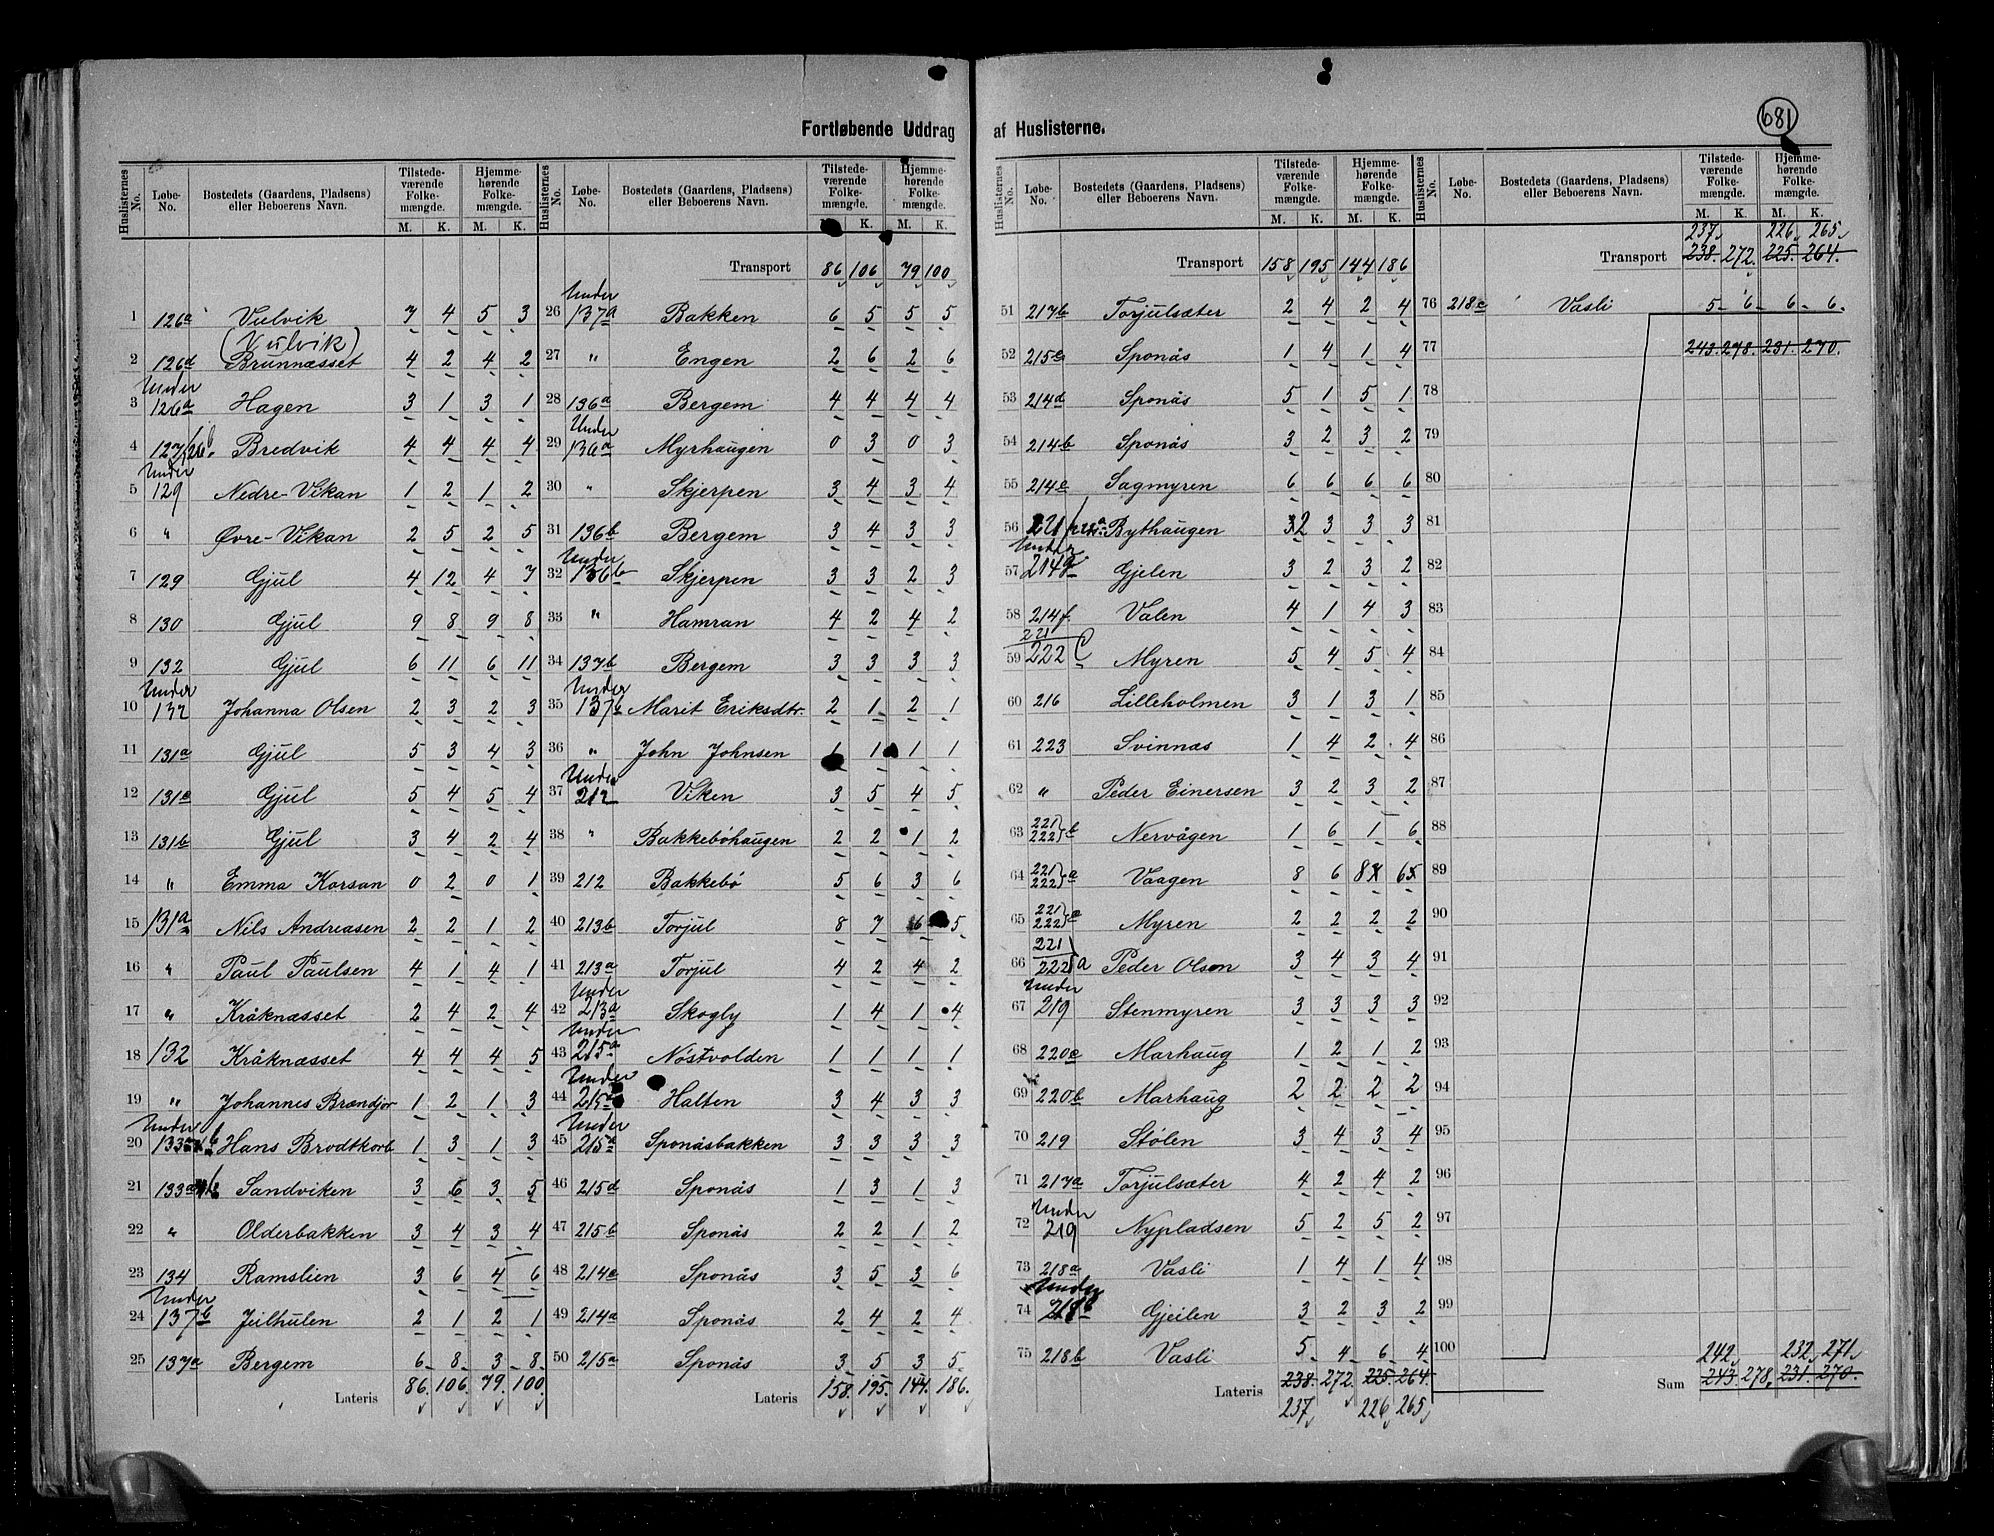 681
Fortløbende Uddrag af Huslisterne.
Huslisternes No. Løbe-No. Bostedets (Gaardens, Pladsens) eller Beboerens Navn. Tilstedeværende Folkemængde. M. K. Hjemmehørende Folkemængde. M. K.
1 126a Vulvik 7 4 5 3
(Vulvik)
2 126d Brunnæsset 4 2 4 2
3 Under 126a Hagen 3 1 3 1
4 127/126b. Bredvik 4 4 4 4
5 Under 129 Nedre-Vikan 1 2 1 2
6 " Øvre-Vikan 2 5 2 5
7 129 Gjul 4 12 4 7
8 130 Gjul 9 8 9 8
9 132 Gjul 6 11 6 11
10 Under 132 Johanna Olsen 2 3 2 3
11 131a Gjul 5 3 4 3
12 131c Gjul 5 4 5 4
13 131b Gjul 3 4 2 4
14 " Emma Korsan 0 2 0 1
15 131a Nils Andreasen 2 2 1 2
16 " Paul Paulsen 4 1 4 1
17 " Kråknæsset 2 4 2 4
18 132 Kråknæsset 4 4 4 5
19 " Johannes Brandjor 1 2 1 3
20 Under 133a Hans Brodtkorb 1 3 1 3
21 133a Sandviken 3 6 3 5
22 " Olderbakken 3 4 3 4
23 134 Ramslien 3 6 4 6
24 Under 137b Julhulen 2 1 2 1
25 137a Bergem 6 8 3 8
Lateris 86. 106. 79. 100.
Huslisternes No. Løbe-No. Bostedets (Gaardens, Pladsens) eller Beboerens Navn. Tilstedeværende Folkemængde. M. K. Hjemmehørende Folkemængde. M. K.
Transport 86 106 79 100
26 Under 137a Bakken 6 5 5 5
27 " Engen 2 6 2 6
28 136a Bergem 4 4 4 4
29 Under 136a Myrhaugen 0 3 0 3
30 " Skjerpen 3 4 3 4
31 136b Bergem 3 4 3 3
32 Under 136b Skjerpen 3 3 2 3
33 " Hamran 4 2 4 2
34 137b Bergem 3 3 3 3
35 Under 137b Marit Eriksdtr. 2 1 2 1
36 " John Johnsen 1 1 1 1
37 Under 212 Viken 3 5 4 5
38 " Bakkebøhaugen 2 2 1 2
39 212 Bakkebø 5 6 3 6
40 213b Torjul 8 7 6 5
41 213a Torjul 4 2 4 2
42 Under 213a Skogly 1 4 1 4
43 Under 215a Nöstvolden 1 1 1 1
44 Under 215a Halten 3 4 3 3
45 Under 215a Sponåsbakken 3 3 3 3
46 215d Sponås 1 3 1 3
47 215b Sponås 2 2 1 2
48 214c Sponås 3 5 3 6
49 214a Sponås 2 4 2 4
50 215a Sponås 3 5 3 5
Lateris 158. 195. 144. 186.
Huslisternes No. Løbe-No. Bostedets (Gaardens, Pladsens) eller Beboerens Navn. Tilstedeværende Folkemængde. M. K. Hjemmehørende Folkemængde. M. K.
Transport 158 195 144 186
51 217b Torjulsæter 2 4 2 4
52 215c Sponås 1 4 1 4
53 214d Sponås 5 1 5 1
54 214b Sponås 3 2 3 2
55 214e Sagmyren 6 6 6 6
56 221/222a Bythaugen 2 3 3 3
57 Under 214g Gjelen 3 2 3 2
58 214f. Valen 4 1 4 3
59 221 222 c Myren 5 4 5 4
60 216 Lilleholmen 3 1 3 1
61 223 Svinnæs 1 4 2 4
62 " Peder Einersen 3 2 3 2
63 221 222 b Nervågen 1 6 1 6
64 221 222 a Vaagen 8 6 8 6
65 221 222 a Myren 2 2 2 2
66 221 222 a Peder Olson 3 4 3 4
67 Under 219 Stenmyren 3 3 3 3
68 220c Marhaug 1 2 1 2
69 220b Marhaug 2 2 2 2
70 219 Stølen 3 4 3 4
71 217a Torjulsæter 4 2 4 2
72 Under 219 Nypladsen 5 2 5 2
73 218a Vasli 1 4 1 4
74 Under 218b Gjeilen 3 2 3 2
75 218b Vasli 5 4 6 4
Lateris 238. 272. 225. 264.
237 226 265
Huslisternes No. Løbe-No. Bostedets (Gaardens, Pladsens) eller Beboerens Navn. Tilstedeværende Folkemængde. M. K. Hjemmehørende Folkemængde. M. K.
237 226 265
Transport 238. 272. 225. 264.
76 218c Vasli 5 6 6 6
77 243. 278. 231. 270.
78
79
80
81
82
83
84
85
86
87
88
89
90
91
92
93
94
95
96
97
98
99
100 242 232 271
Sum 243. 278. 231. 270.